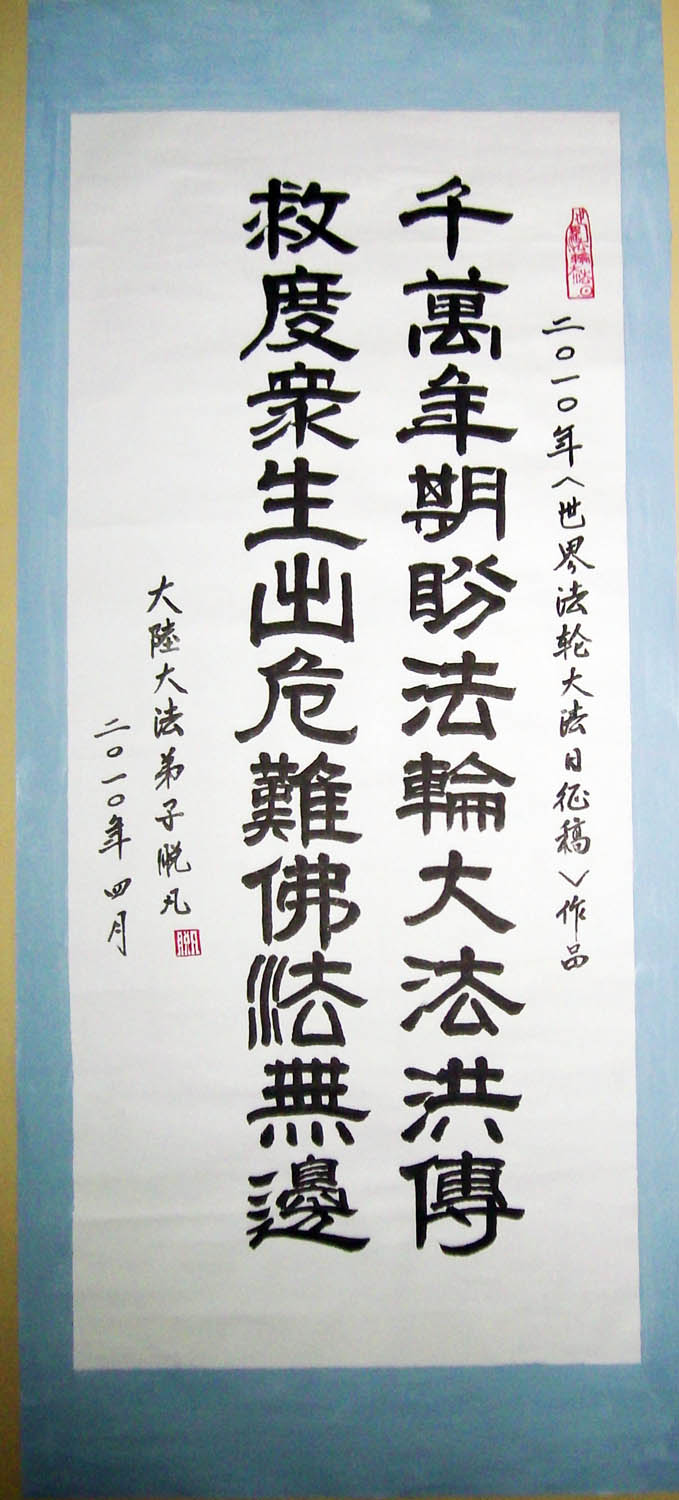 世界法輪大法日
二〇一〇年〈世界法轮大法日征稿〉作品
千萬年期盼法輪大法洪傳
救度衆生出危難佛法無邊
大陸大法弟子脱凡
二〇一〇年四月